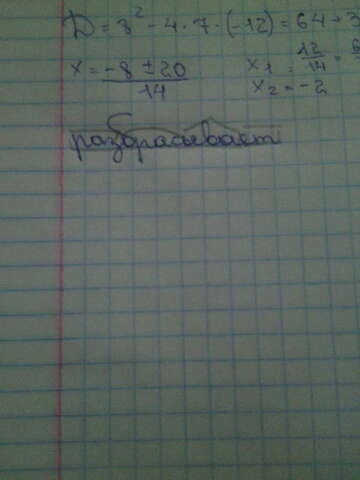 D = 8² - 4 · 7 · (-12) = 64 + 3
x = -8 ± 20 / 14
x₁ = 12/14 = 6
x₂ = -2
разбрасывает